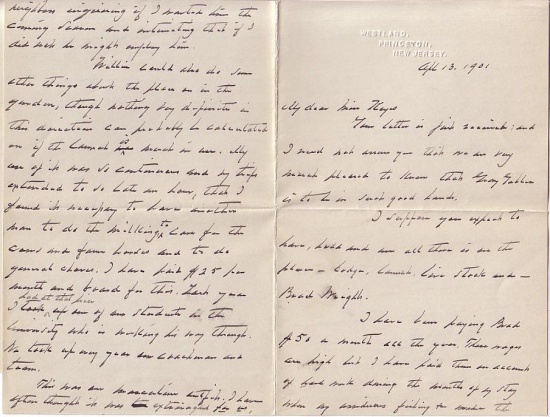 WESTLAND,
PRINCETON,
NEW JERSEY.
Apl 13. 1901
My dear Miss
Your letter is just received: and
I need not assure you that we are very
much pleased to know that Gray Gables
is to be in such good hands.
I suppose you expect to
have, hold and use all there is on the
place – Lodge, Launch, Live Stock and –
Brad Wright.
I have been paying Brad
$50 a month all the year. These wages
are high but I have paid them on account
of hard work during the months of my stay
when my assiduous fishing made the
neighbors inquiring if I wanted him the
coming season and intimating that if I
did not he might employ him.
William could also do some
other things about the place or in the
garden, though nothing very definite in
this direction can probably be calculated
on if the Launch is much in use. My
use of it was so continuous and my trips
extended to so late an hour, that I
found it necessary to have another
man to do the milking to care for the
cows and farm horses and to do
general chores. I have paid $25 per
month and board for this. Last year
had at that price
I took up one of our students in the
University who is working his way through.
We took up every year our coachman and
team.
This was an
often thought it was for us.